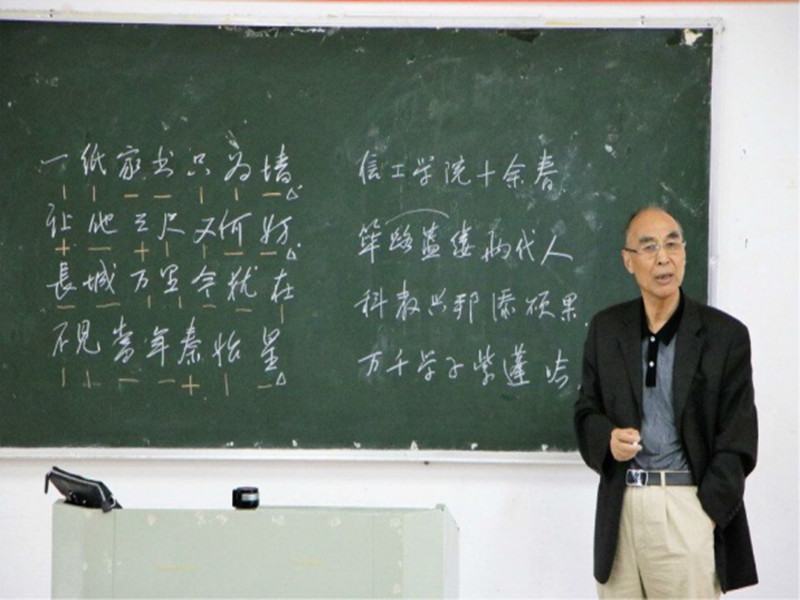 一纸家书只为墙
让他三尺又何妨
長城万里今犹在
不見當年秦始皇
信工学院十余春
筚路蓝缕两代人
科教兴邦添硕果
万千学子紫蓬吟